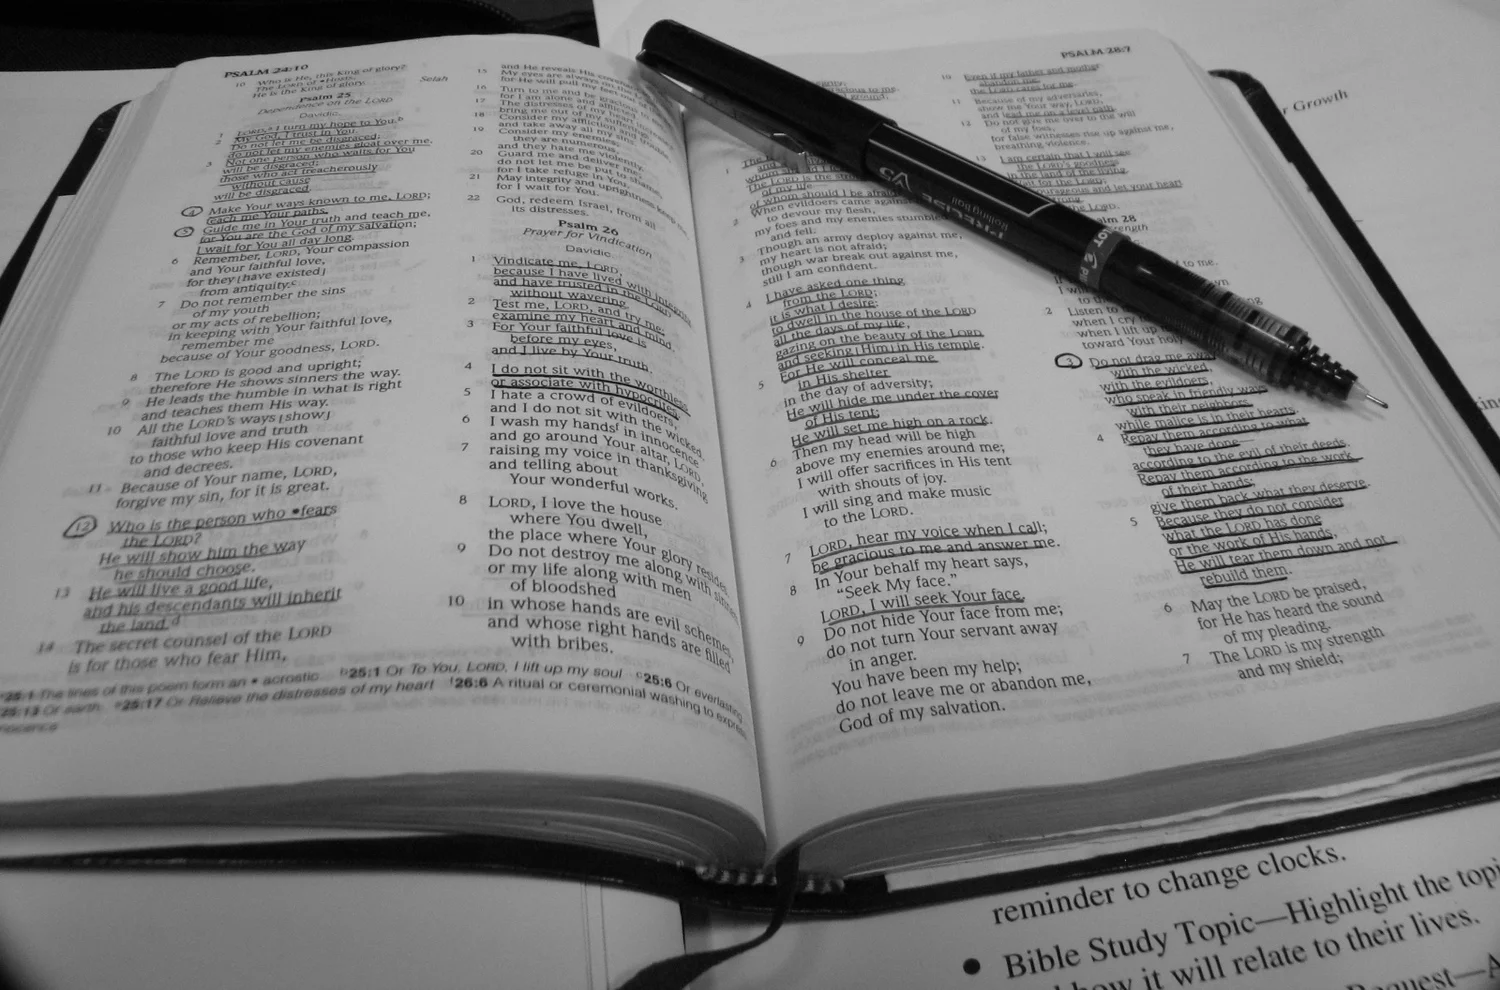 PSALM 24:10
10 Who is He, this King of glory?
The LORD of •Hosts,
He is the King of glory. Selah
Psalm 25
Dependence on the LORD
Davidic.
1 LORD,ᵃ I turn my hope to You.ᵇ
2 My God, I trust in You.
Do not let me be disgraced;
do not let my enemies gloat over me.
3 Not one person who waits for You
will be disgraced;
those who act treacherously
without cause
will be disgraced.
4 Make Your ways known to me, LORD;
teach me Your paths.
5 Guide me in Your truth and teach me,
for You are the God of my salvation;
I wait for You all day long.
6 Remember, LORD, Your compassion
and Your faithful love,
for they ⌊have existed⌋
from antiquity.ᶜ
7 Do not remember the sins
of my youth
or my acts of rebellion;
in keeping with Your faithful love,
remember me
because of Your goodness, LORD.
8 The LORD is good and upright;
therefore He shows sinners the way.
9 He leads the humble in what is right
and teaches them His way.
10 All the LORD's ways ⌊show⌋
faithful love and truth
to those who keep His covenant
and decrees.
11 Because of Your name, LORD,
forgive my sin, for it is great.
12 Who is the person who •fears
the LORD?
He will show him the way
he should choose.
13 He will live a good life,
and his descendants will inherit
the land.ᵈ
14 The secret counsel of the LORD
is for those who fear Him,
and He reveals His
15 My eyes are always on
for He will pull my feet out of
16 Turn to me and be gracious
for I am alone and
17 The distresses of my heart
bring me out of my
18 Consider my affliction and
and take away all my sins.
19 Consider my enemies;
they are numerous,
and they hate me violently.
20 Guard me and deliver me;
do not let me be put to shame,
for I take refuge in You.
21 May integrity and uprightness keep
for I wait for You.
22 God, redeem Israel, from all
its distresses.
Psalm 26
Prayer for Vindication
Davidic.
1 Vindicate me, LORD,
because I have lived with integrity
and have trusted in the LORD
without wavering.
2 Test me, LORD, and try me;
examine my heart and mind.
3 For Your faithful love is
before my eyes,
and I live by Your truth.
4 I do not sit with the worthless
or associate with hypocrites.
5 I hate a crowd of evildoers,
and I do not sit with the wicked.
6 I wash my handsᶠ in innocence
and go around Your altar, LORD,
7 raising my voice in thanksgiving
and telling about
Your wonderful works.
8 LORD, I love the house
where You dwell,
the place where Your glory resides.
9 Do not destroy me along with sinners,
or my life along with men
of bloodshed
10 in whose hands are evil schemes,
and whose right hands are filled
with bribes.
ᵃ25:1 The lines of this poem form an • acrostic ᵇ25:1 Or To You, LORD, I lift up my soul ᶜ25:6 Or everlasting
25:13 Or earth ᵉ25:17 Or Relieve the distresses of my heart ᶠ26:6 A ritual or ceremonial washing to express
PSALM 28:7
The LORD is the
of my life
whom should I be afraid
2 When evildoers came against
to devour my flesh,
my foes and my enemies stumbled
and fell.
3 Though an army deploy against me,
my heart is not afraid;
though war break out against me,
still I am confident.
4 I have asked one thing
from the LORD;
it is what I desire:
to dwell in the house of the LORD
all the days of my life,
gazing on the beauty of the LORD
and seeking ⌊Him⌋ in His temple.
5 For He will conceal me
in His shelter
in the day of adversity;
He will hide me under the cover
of His tent;
He will set me high on a rock.
6 Then my head will be high
above my enemies around me;
I will offer sacrifices in His tent
with shouts of joy.
I will sing and make music
to the LORD.
7 LORD, hear my voice when I call;
be gracious to me and answer me.
8 In Your behalf my heart says,
"Seek My face."
LORD, I will seek Your face.
9 Do not hide Your face from me;
do not turn Your servant away
in anger.
You have been my help;
do not leave me or abandon me,
God of my salvation.
10 Even if my father and mother
abandon me,
the LORD cares for me.
11 Because of my adversaries,
show me Your way, LORD,
and lead me on a level path.
12 Do not give me over to the will
of my foes,
for false witnesses rise up against me,
breathing violence.
13 I am certain that I will see
the LORD's goodness
in the land of the living.
Wait for the LORD;
courageous and let your heart
strong.
the LORD.
Psalm 28
Strength
to me.
2 Listen to
when I cry
when I lift up
toward Your holy
3 Do not drag me away
with the wicked,
with the evildoers,
who speak in friendly ways
with their neighbors
while malice is in their hearts.
4 Repay them according to what
they have done—
according to the evil of their deeds.
Repay them according to the work
of their hands;
give them back what they deserve.
5 Because they do not consider
what the LORD has done
or the work of His hands,
He will tear them down and not
rebuild them.
6 May the LORD be praised,
for He has heard the sound
of my pleading.
7 The LORD is my strength
and my shield;
PRECISE V5
Rolling Ball
Growth
reminder to change clocks.
• Bible Study Topic—Highlight the
how it will relate to their lives.